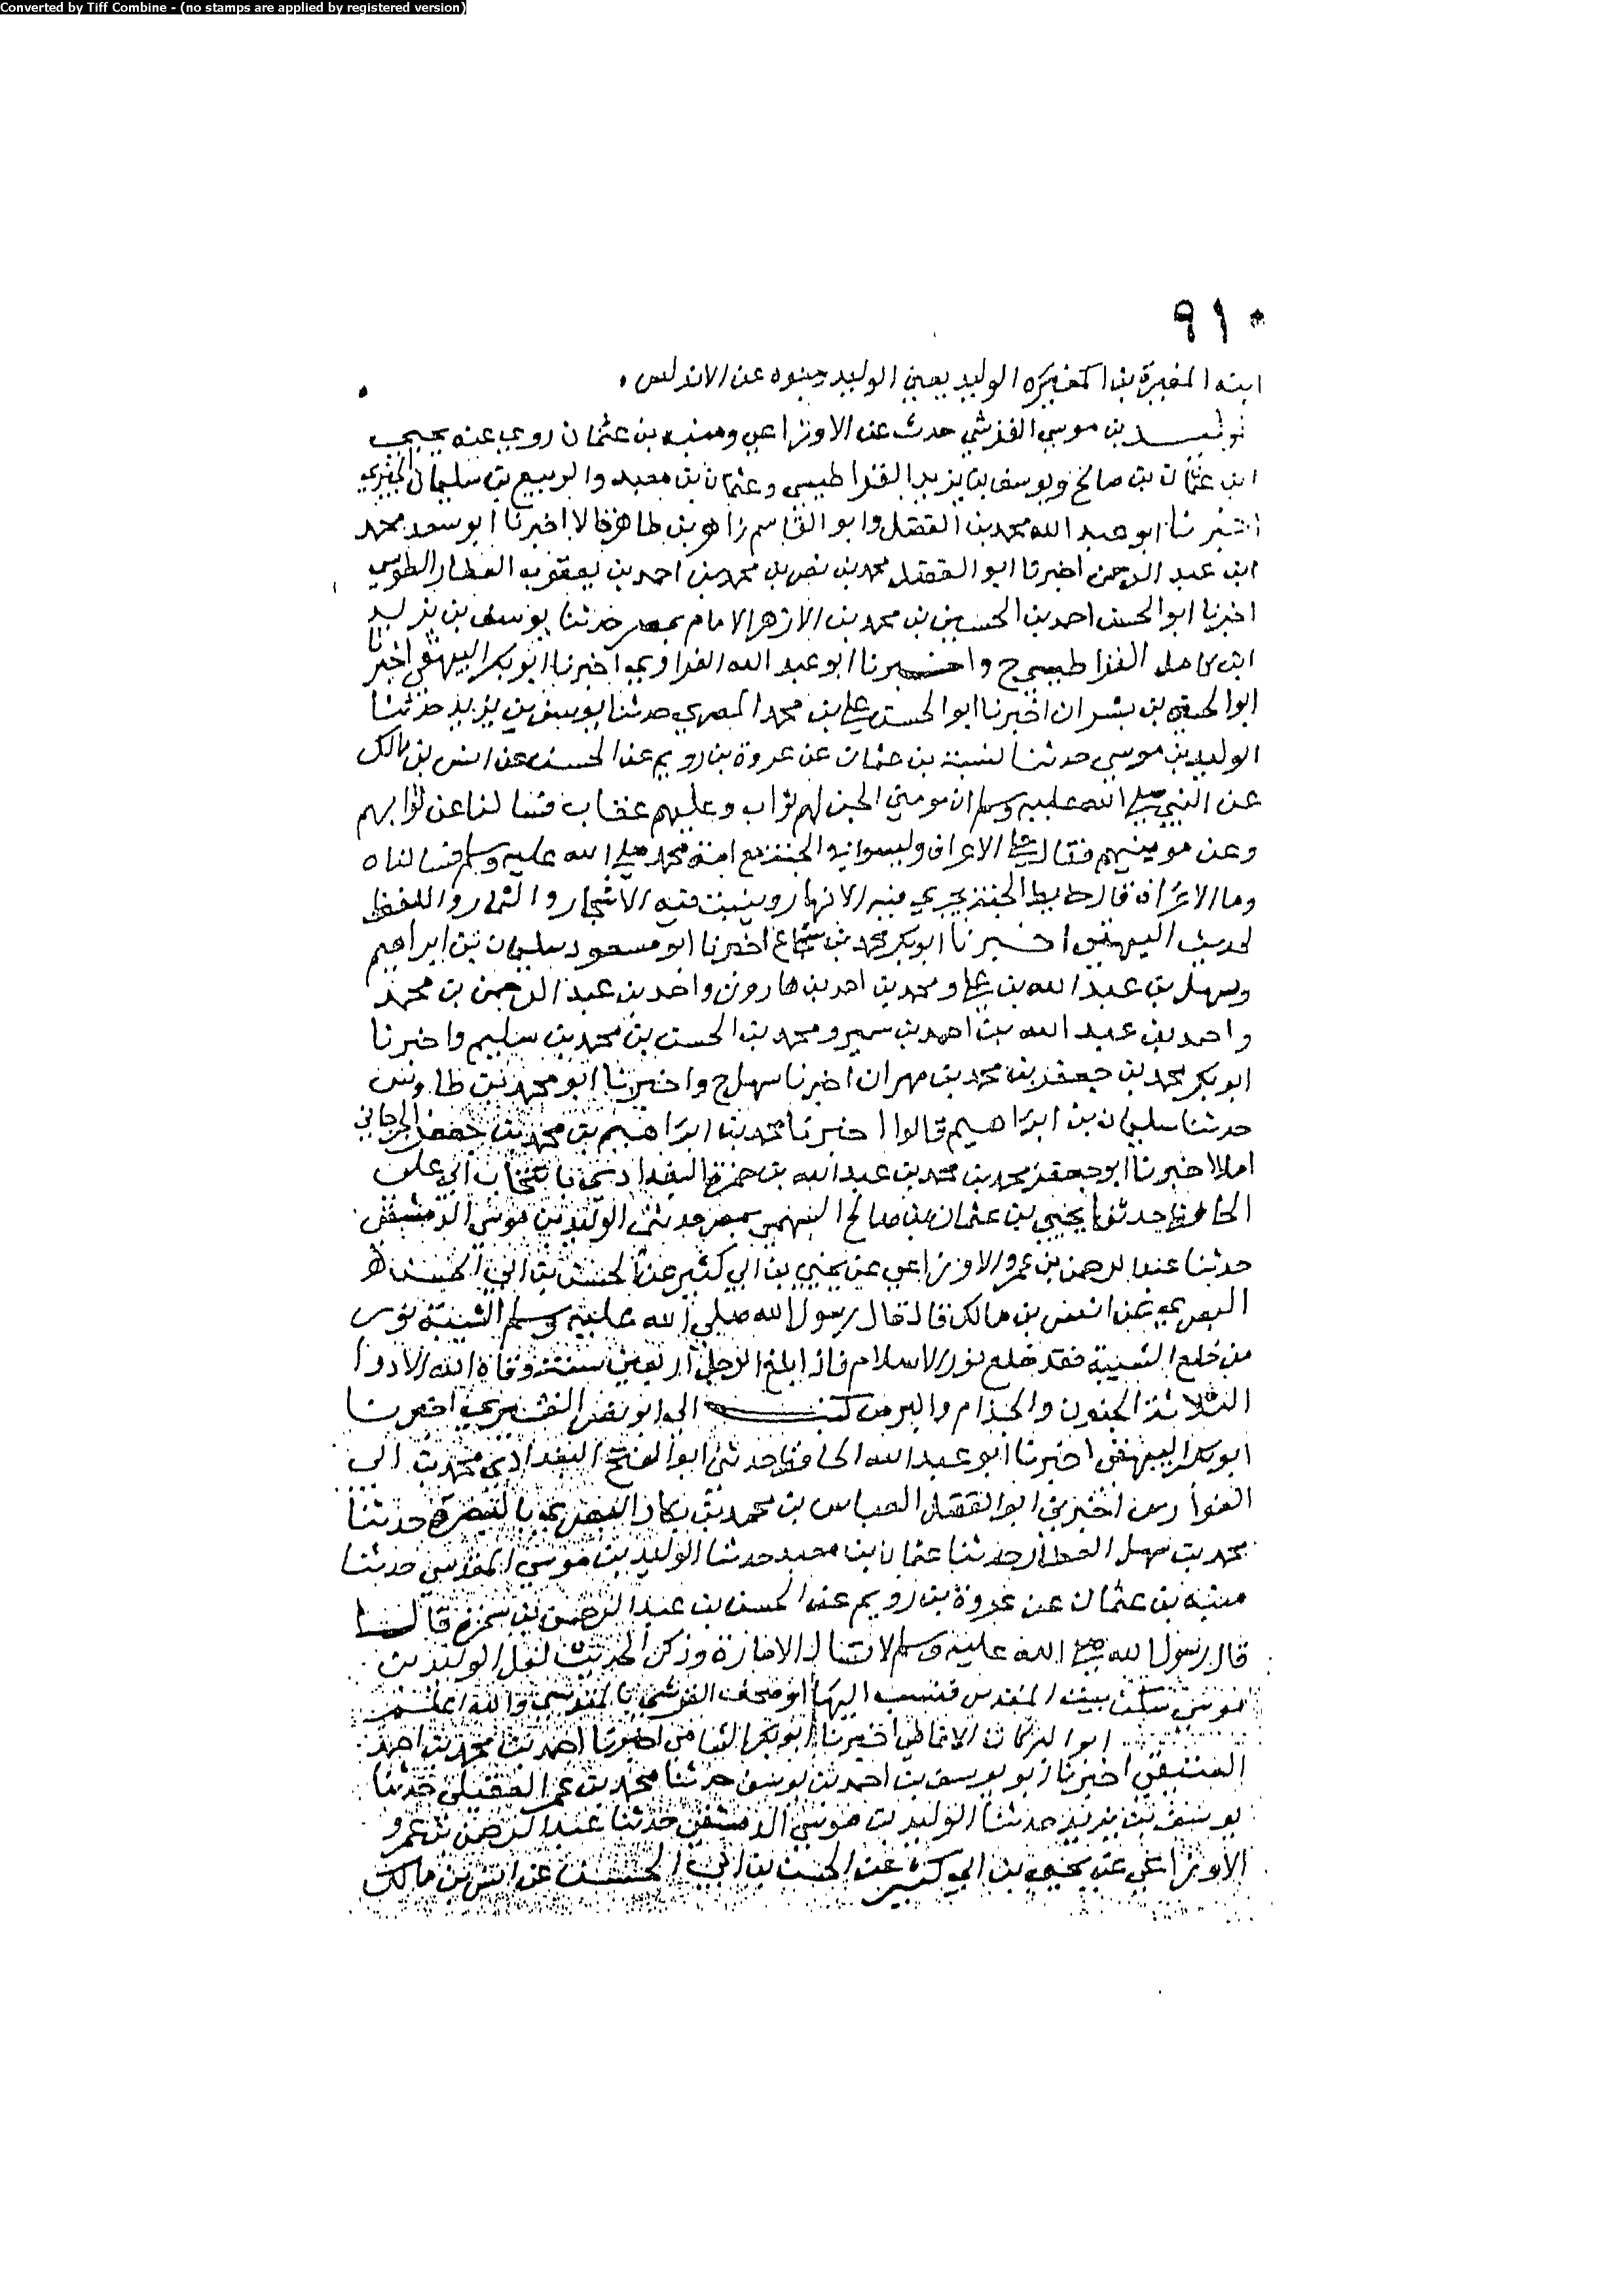 Converted by Tiff Combine - (no stamps are applied by registered version)
٩١٠
ابنه المغيرة بن الوليد يعني الوليد بنوه عن الاندلس
بن موسي القرشي حدث عن الاوزاعي ومنبه بن عثمان روي عنه يحيي
ابن عثمان بن صالح ويوسف بن يزيد القراطيسي وعثمان بن معبد والربيع بن سليمان الجيزي
اخبرنا ابو عبد الله محمد بن الفضل وابو القاسم زاهر بن طاهر قالا اخبرنا ابو سعد محمد
ابن عبد الرحمن اخبرنا ابو الفضل محمد بن نصر بن محمد بن احمد بن يعقوب العطار الطوسي
اخبرنا ابو الحسن احمد بن الحسين بن محمد بن الازهر الامام بمصر حدثنا يوسف بن يزيد
ابن كامل القراطيسي ح واخبرنا ابو عبد الله الفراوي اخبرنا ابو بكر البيهقي اخبرنا
ابو الحسين بن بشران اخبرنا ابو الحسن علي بن محمد المصري حدثنا يوسف بن يزيد حدثنا
الوليد بن موسي حدثنا منبه بن عثمان عن عروة بن رويم عن الحسن عن انس بن مالك
عن النبي صلى الله عليه وسلم ان مومني الجن لهم ثواب وعليهم عقاب فسالنا عن ثوابهم
وعن مومنيهم فقال علي الاعراف وليسوا في الجنة مع امة محمد صلى الله عليه وسلم فسالناه
وما الاعراف قال حايط الجنة يجري فيه الانهار وينبت فيه الاشجار والثمار واللفظ
لحديث البيهقي اخبرنا ابو بكر محمد بن شجاع اخبرنا ابو مسعود سليمان بن ابراهيم
وسهل بن عبد الله بن علي ومحمد بن احمد بن هارون واحمد بن عبد الرحمن بن محمد
واحمد بن عبد الله بن احمد بن سمير ومحمد بن الحسن بن محمد بن سليم واخبرنا
ابو بكر محمد بن جعفر بن محمد بن مهران اخبرنا سهل ح واخبرنا ابو محمد بن طاوس
حدثنا سليمان بن ابراهيم قالوا اخبرنا محمد بن ابراهيم بن محمد بن جعفر الجرجاني
املا اخبرنا ابو جعفر محمد بن محمد بن عبد الله بن حمزة البغدادي بانتخاب ابي علي
الحافظ حدثنا يحيي بن عثمان بن صالح السهمي بمصر حدثني الوليد بن موسي الدمشقي
حدثنا عبد الرحمن بن عمرو الاوزاعي عن يحيي بن ابي كثير عن الحسن بن ابي الحسن
البصري عن انس بن مالك قال قال رسول الله صلي الله عليه وسلم الشيبة نور
من خلع الشيبة فقد خلع نور الاسلام فاذا بلغ الرجل اربعين سنة وقاه الله الادوا
الثلاثة الجنون والجذام والبرص كتب الي ابو نصر القشيري اخبرنا
ابو بكر البيهقي اخبرنا ابو عبد الله الحافظ حدثني ابو الفتح البغدادي محمد بن ابي
الفوارس اخبرني ابو الفضل العباس بن محمد بن بكار البصري بالبصرة حدثنا
محمد بن سهل العطار حدثنا عثمان بن معبد حدثنا الوليد بن موسي المقدسي حدثنا
منبه بن عثمان عن عروة بن رويم عن الحسن بن عبد الرحمن بن سمرة قال
قال رسول الله صلى الله عليه وسلم لا تسال الامارة وذكر الحديث لعل الوليد بن
موسي سكن بيت المقدس فنسب اليها القرشي بالمقدسي والله اعلم
ابو البركات الانماطي اخبرنا ابو بكر الشامي اخبرنا احمد بن محمد بن احمد
العتيقي اخبرنا ابو يوسف بن احمد بن يوسف حدثنا محمد بن عمر العقيلي حدثنا
يوسف بن يزيد حدثنا الوليد بن موسي الدمشقي حدثنا عبد الرحمن بن عمرو
الاوزاعي عن يحيي بن ابي كثير عن الحسن بن ابي الحسن عن انس بن مالك